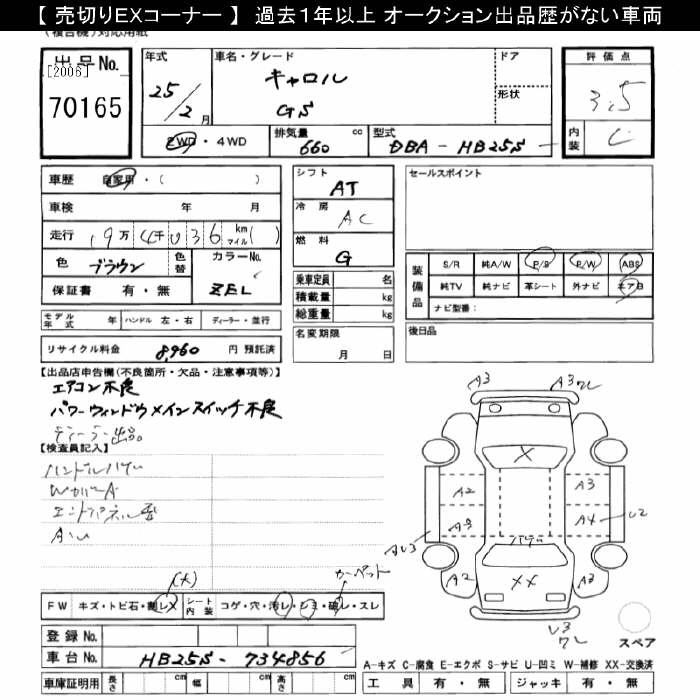 【 売切りEXコーナー 】 過去1年以上 オークション出品歴がない車両
出品No.
[2006]
70165
年式
25/2月
車名・グレード
キャロル
GS
ドア
形状
評価点
3.5
内装
C
2WD・4WD
排気量 660 cc
型式 DBA-HB25S
車歴 自家用・( )
車検 年 月
走行 19万4千036 km マイル( )
色 ブラウン 色替 カラーNo. ZEL
保証書 有・無
シフト AT
冷房 AC
燃料 G
乗車定員 名
積載量 kg
総重量 kg
セールスポイント
装備品
S/R 純A/W P/S P/W ABS
純TV 純ナビ 革シート 外ナビ エアB
ナビ型番:
モデル年式 年 ハンドル 左・右 ディーラー・並行
リサイクル料金 8,960 円 預託済
名変期限
月 日
後日品
【出品店申告欄(不良箇所・欠品・注意事項等)】
エアコン不良
パワーウィンドウメインスイッチ不良
ディーラー出品。
【検査員記入】
ハンドルハゲ
WカバーA
A・U
A3 A3
X
A2 A3
A3 A4 U2
AU3
ハゲ
A2 XX A3
U3
(X) カーペット
FW キズ・トビ石・割レX シート内装 コゲ・穴・汚レ・シミ・破レ・スレ
スペア
登録No.
車台No. HB25S-734856
A-キズ C-腐食 E-エクボ S-サビ U-凹ミ W-補修 XX-交換済
車庫証明用 長さ cm 幅 cm 高さ cm
工具 有・無 ジャッキ 有・無